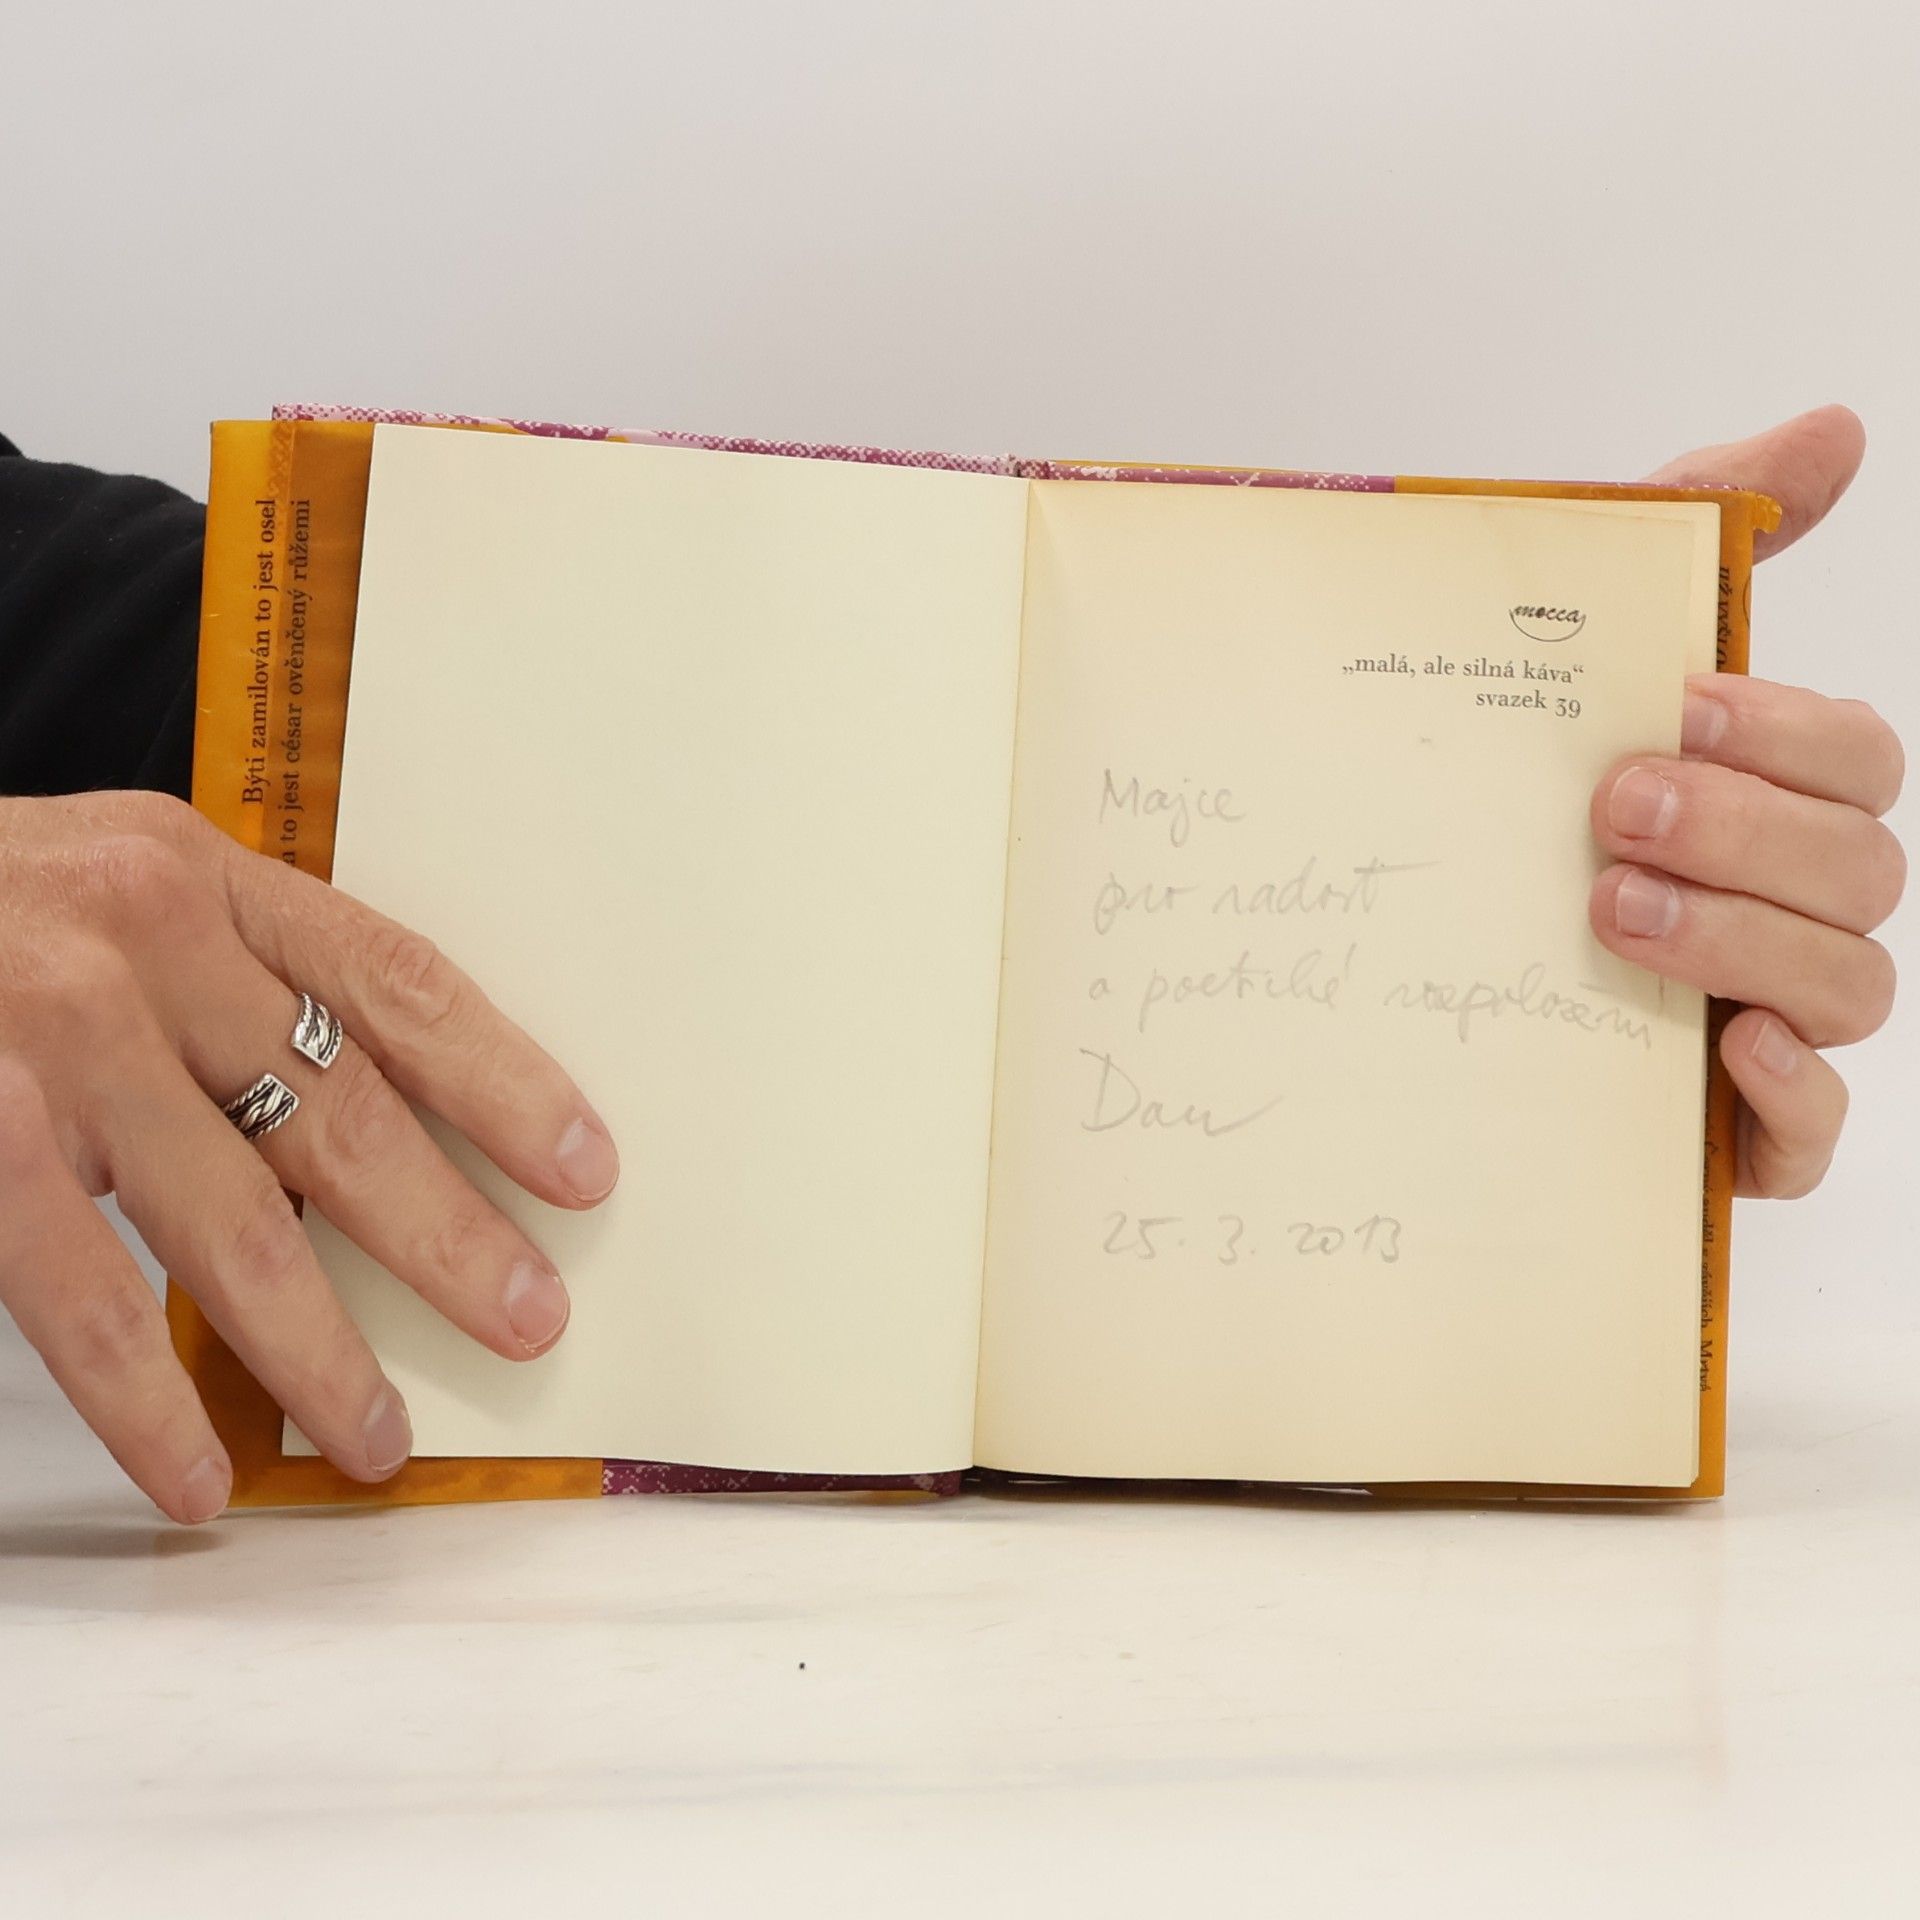 Býti zamilován to jest osel
a to jest césar ověnčený růžemi
mocca
„malá, ale silná káva“
svazek 39
Majce
pro radost
a poetické rozpoložení
Dan
25. 3. 2013